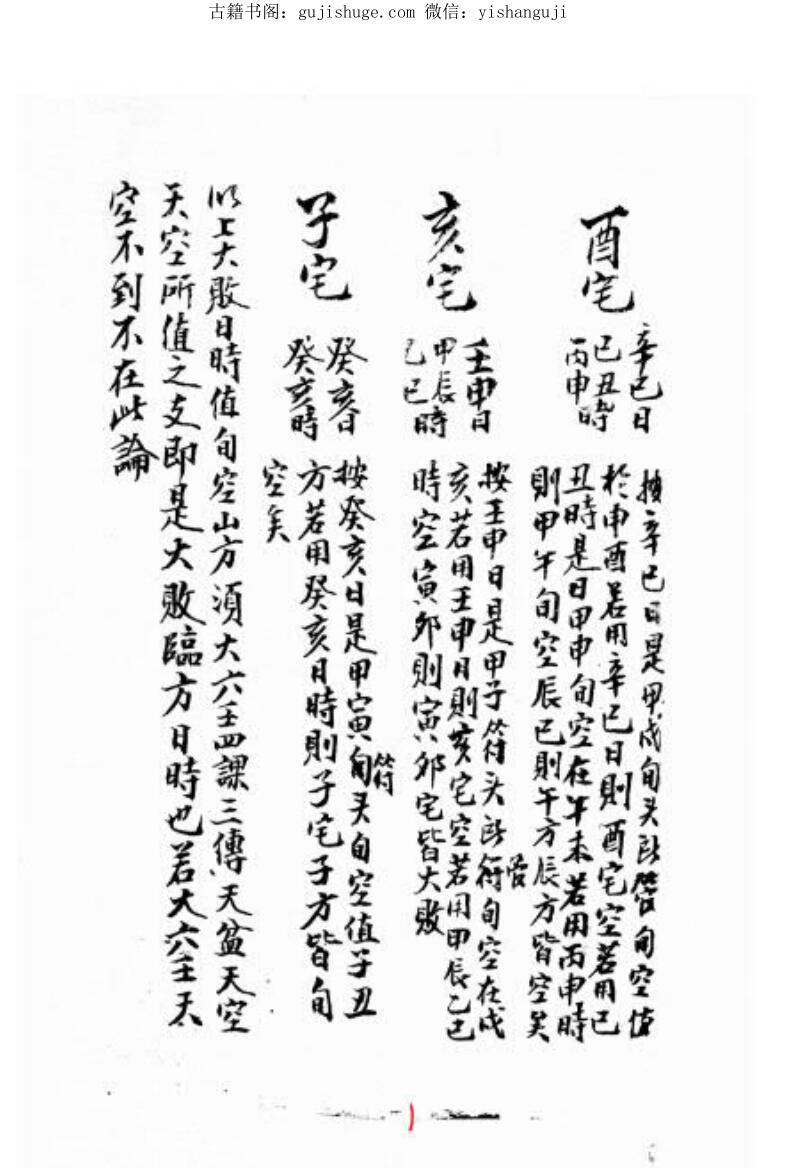 古籍书阁：gujishuge.com 微信：yishanguji
酉宅
辛巳日
己丑時
丙申時
按辛巳日是甲戌旬头所管旬空值
於申酉若用辛巳日則酉宅空若用己
丑時是日甲申旬空在午未若用丙申時
則甲午旬空辰巳則午方辰方皆空矣
亥宅
壬申日
甲辰時
乙巳
按壬申日是甲子符头所管旬空在戌
亥若用壬申日則亥宅空若用甲辰乙巳
時空寅卯則寅卯宅皆大敗
子宅
癸亥日
癸亥時
按癸亥日是甲寅旬符头旬空值子丑
方若用癸亥日時則子宅子方皆旬
空矣
以上大敗日時值旬空山方須大六壬四課三傳天盆天空
天空所值之支即是大敗臨方日時也若大六壬天
空不到不在此論